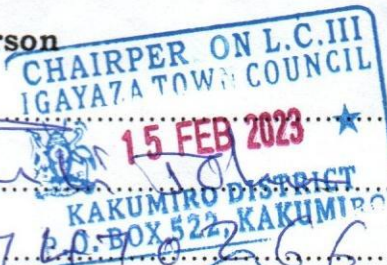 rson
CHAIRPER ON L.C.III
IGAYAZA TOWN COUNCIL
15 FEB 2023
KAKUMIRO DISTRICT
P.O. BOX 522, KAKUMIRO